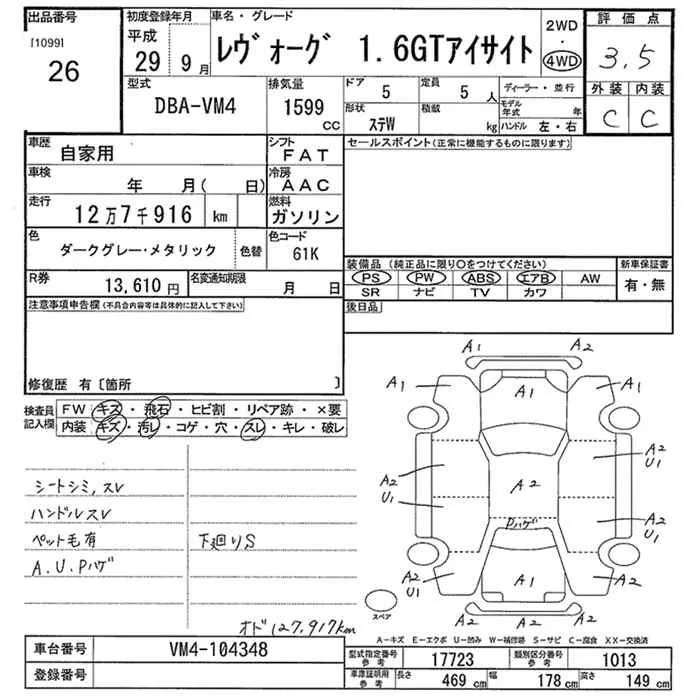 出品番号
[1099]
26
初度登録年月
平成
29 9月
車名・グレード
レヴォーグ 1.6GTアイサイト
2WD
・
4WD
評価点
3.5
外装 内装
C C
型式
DBA-VM4
排気量
1599
CC
ドア
5
定員
5 人
形状
ステW
積載
kg
ディーラー・並行
モデル年式 年
ハンドル 左・右
車歴
自家用
シフト
FAT
車検
年 月( 日)
冷房
AAC
走行
12万7千916 km
燃料
ガソリン
色
ダークグレー・メタリック
色替
色コード
61K
R券
13,610 円
名変通知期限
月 日
セールスポイント(正常に機能するものに限ります)
装備品 (純正品に限り○をつけてください)
PS PW ABS エアB AW
SR ナビ TV カワ
新車保証書
有・無
後日品
注意事項申告欄(不具合内容等は具体的に記入して下さい)
修復歴 有〔箇所 〕
検査員
記入欄
FW キズ・飛石・ヒビ割・リペア跡・×要
内装 キズ・汚レ・コゲ・穴・スレ・キレ・破レ
シートシミ,スレ
ハンドルスレ
ペット毛有
下廻りS
A.U.Pハゲ
オド127,917km
A1 A2
A1 A1 A1
A2 U1
A2 U1
A2
U1
Pハゲ
A2 U1
A2 U1
A1
A2
A2 A2
スペア
A-キズ E-エクボ U-凹み W-補修跡 S-サビ C-腐食 XX-交換済
車台番号
VM4-104348
登録番号
型式指定番号
参考
17723
類別区分番号
参考
1013
車庫証明用
参考
長さ
469 cm
幅
178 cm
高さ
149 cm